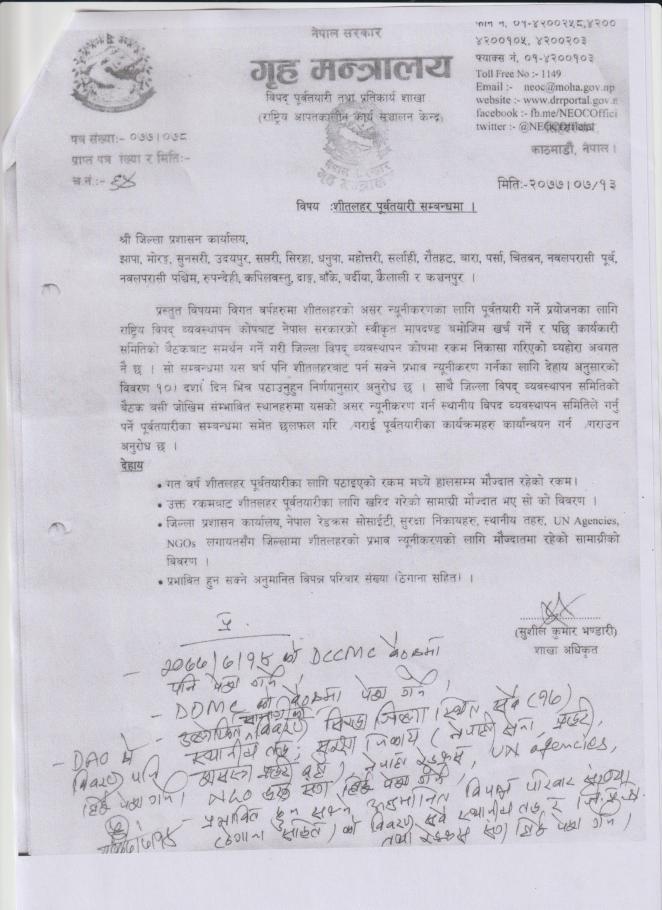 नेपाल सरकार
गृह मन्त्रालय
विपद् पूर्वतयारी तथा प्रतिकार्य शाखा
(राष्ट्रिय आपतकालीन कार्य सञ्चालन केन्द्र)
फोन नं. ०१-४२००२५८,४२००
४२००१०५, ४२००२०३
फ्याक्स नं. ०१-४२००१०३
Toll Free No :- 1149
Email :- neoc@moha.gov.np
website :- www.drrportal.gov.n
facebook :- fb.me/NEOCOffici
twitter :- @NEOCOfficial
काठमाडौं, नेपाल।
पत्र संख्या:- ०७७।०७८
प्राप्त पत्र संख्या र मिति:-
च.नं.:- ३४
मिति:-२०७७।०७/१३
विषय :शीतलहर पूर्वतयारी सम्बन्धमा ।
श्री जिल्ला प्रशासन कार्यालय,
झापा, मोरङ, सुनसरी, उदयपुर, सप्तरी, सिरहा, धनुषा, महोत्तरी, सर्लाही, रौतहट, बारा, पर्सा, चितवन, नवलपरासी पूर्व,
नवलपरासी पश्चिम, रुपन्देही, कपिलवस्तु, दाङ, बाँके, बर्दीया, कैलाली र कञ्चनपुर ।
प्रस्तुत विषयमा विगत वर्षहरुमा शीतलहरको असर न्यूनीकरणका लागि पूर्वतयारी गर्ने प्रयोजनका लागि
राष्ट्रिय विपद् व्यवस्थापन कोषबाट नेपाल सरकारको स्वीकृत मापदण्ड बमोजिम खर्च गर्ने र पछि कार्यकारी
समितिको बैठकबाट समर्थन गर्ने गरी जिल्ला विपद् व्यवस्थापन कोषमा रकम निकासा गरिएको व्यहोरा अवगत
नै छ । सो सम्बन्धमा यस वर्ष पनि शीतलहरबाट पर्न सक्ने प्रभाव न्यूनीकरण गर्नका लागि देहाय अनुसारको
विवरण १०। दश। दिन भित्र पठाउनुहुन निर्णयानुसार अनुरोध छ । साथै जिल्ला विपद् व्यवस्थापन समितिको
बैठक बसी जोखिम संभावित स्थानहरुमा यसको असर न्यूनीकरण गर्न स्थानीय विपद व्यवस्थापन समितिले गर्नु
पर्ने पूर्वतयारीका सम्बन्धमा समेत छलफल गरि /गराई पूर्वतयारीका कार्यक्रमहरु कार्यान्वयन गर्न /गराउन
अनुरोध छ ।
देहाय
• गत वर्ष शीतलहर पूर्वतयारीका लागि पठाइएको रकम मध्ये हालसम्म मौज्दात रहेको रकम।
• उक्त रकमबाट शीतलहर पूर्वतयारीका लागि खरिद गरेको सामाग्री मौज्दात भए सो को विवरण ।
• जिल्ला प्रशासन कार्यालय, नेपाल रेडक्रस सोसाईटी, सुरक्षा निकायहरु, स्थानीय तहरु, UN Agencies,
NGOs लगायतसँग जिल्लामा शीतलहरको प्रभाव न्यूनीकरणको लागि मौज्दातमा रहेको सामाग्रीको
विवरण ।
• प्रभावित हुन सक्ने अनुमानित विपन्न परिवार संख्या (ठेगाना सहित) ।
(सुशील कुमार भण्डारी)
शाखा अधिकृत
प्र.
- २०७७/७/१४ को DCCMC बैठकमा
पनि पेश गर्ने
- DDMC को बैठकमा पेश गर्ने ।
- विवरण जिल्ला स्थित सबै (१७)
स्थानीय तह, सुरक्षा निकाय (नेपाली सेना, प्रहरी,
नेपाल रेडक्रस, UN agencies,
- DAO मै
विवरण पनि
लिई पेश गर्ने।
NGO लिई पेश गर्ने
- प्रभावित हुन सक्ने अनुमानित विपन्न परिवार संख्या
(ठेगाना सहित) को विवरण सबै स्थानीय तह र जि.प्र.का.
तथा रेडक्रस संग लिई पेश गर्ने।